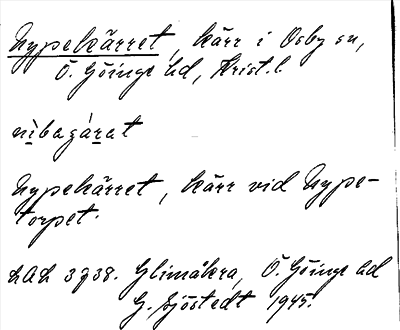 Nypekärret, kärr i Osby sn,
Ö. Göinge hd, Krist.l.
nìbagárat
Nypekärret, kärr vid Nype-
torpet.
LAL 3938. Glimåkra, Ö. Göinge hd
G. Sjöstedt 1945.